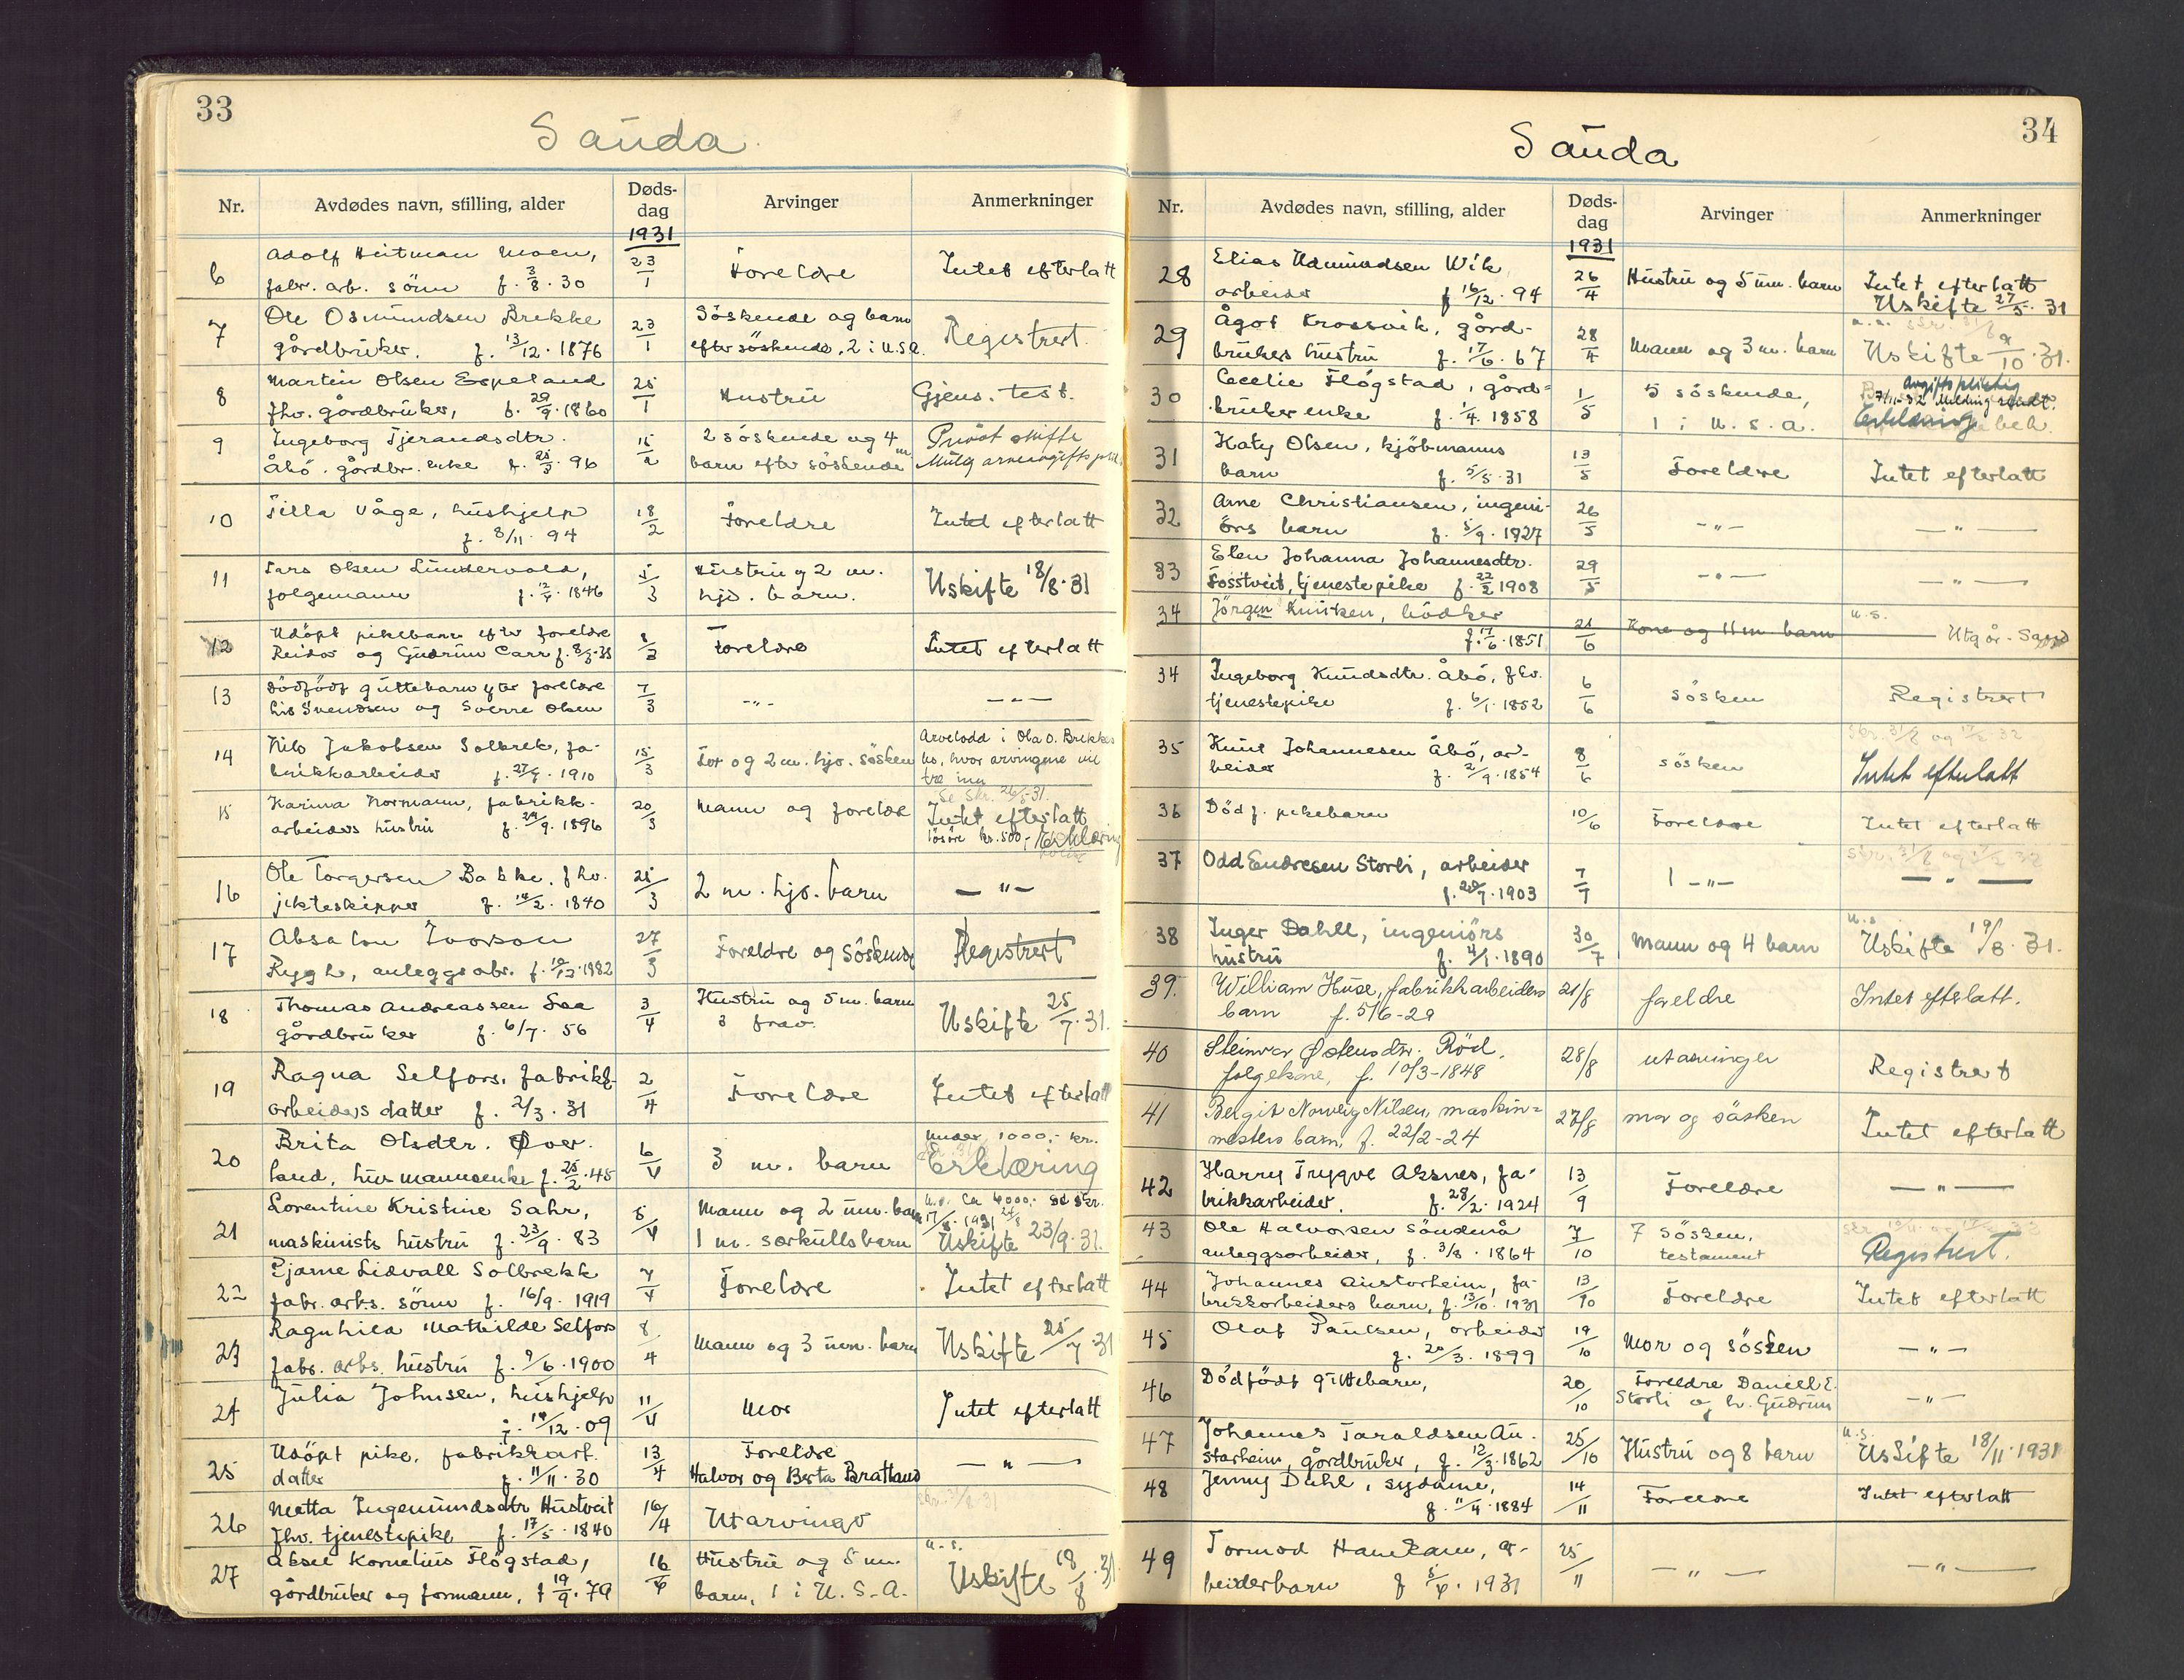 33
Sauda
Nr.
Avdødes navn, stilling, alder
Døds-
dag
Arvinger
Anmerkninger
1931
6
Adolf Heitman Moen,
fabr. arb. sönn f. 3/8. 30
23/1
Foreldre
Intet efterlatt
7
Ole Osmundsen Brekke
gårdbruker. f. 13/12. 1876
23/1
Söskende og barn
efter söskende, 2 i U.S.A.
Registrert.
8
Martin Olsen Espeland
fhv. gårdbruker, f. 29/9. 1860
25/1
Hustru
Gjens. test.
9
Ingeborg Tjerandsdtr.
Åbö. gårdbr. enke f. 25/3. 96
15/2
2 söskende og 4
barn efter söskende
Privat skifte
10
Tilla Våge, hushjelp
f. 8/11. 94
18/2
Foreldre
Intet efterlatt
11
Lars Olsen Lundervold,
folgemann f. 12/4. 1846
5/3
Hustru og 2 m.
hjs. barn.
Uskifte 18/8. 31
12
Udöpt pikebarn efter foreldre
Reidar og Gudrun Carr f. 8/3-31
8/3
Foreldre
Intet efterlatt
13
Dödfödt guttebarn efter foreldre
Lis Svendsen og Sverre Olsen
7/3
-"-
-"-
14
Nils Jakobsen Solbrek, fa-
brikkarbeider f. 27/7. 1910
15/3
Far og 2 m. hjs. sösken
Arvelodd i Ola O. Brekkes
bo, hvor arvingene vil
tre inn
15
Karina Normann, fabrikk-
arbeiders hustru f. 24/9. 1896
20/3
Mann og foreldre
Se skr. 26/5-31.
Intet efterlatt
lösöre kr. 500,- Erklæring
16
Ole Torgersen Bakke, fhv.
jekteskipper f. 14/2. 1840
25/3
2 m. hjs. barn
-"-
17
Absalon Ivarson
Rygh, anleggsabr. f. 10/12. 1882
27/3
Foreldre og Söskende
Registrert
18
Thomas Andreassen Saa
gårdbruker f. 6/7. 56
3/4
Hustru og 5 m. barn
3 frav.
Uskifte 25/7. 31.
19
Ragna Selfors, fabrikk-
arbeiders datter f. 2/3. 31
2/4
Foreldre
Intet efterlatt
20
Brita Olsdtr. Över-
land, husmannsenke f. 25/2. 45
6/4
3 m. barn
under 1000,- kr.
Erklæring
21
Lorentine Kristine Sahr,
maskinists hustru f. 23/9. 83
5/4
Mann og 2 um. barn
1 m. særkullsbarn
u.s. ca 4000,- se skr.
17/8. 1931
Uskifte 23/9. 31.
22
Bjarne Lidvall Solbrekk
fabr. arbs. sönn f. 16/9. 1919
7/4
Foreldre
Intet efterlatt
23
Ragnhild Mathilde Selfors
fabr. arbs. hustru f. 9/6. 1900
8/4
Mann og 3 um. barn
Uskifte 25/7. 31
24
Julia Johnsen, hushjelp
f. 14/12. 09
11/4
Mor
Intet efterlatt
25
Udöpt pike, fabrikkarb.
datter f. 11/11. 30
13/4
Foreldre
Halvor og Berta Brattland
-"-
26
Metta Ingemundsdtr Hustveit
fhv. tjenestepike f. 17/5. 1840
16/4
Utarvinger
skr. 31/8 31
27
Aksel Kornelius Flögstad,
gårdbruker og formann, f 19/9. 79
16/4
Hustru og 5 um.
barn, 1 i U. S. A.
u. s.
Uskifte 18/8. 31
34
Sauda
Nr.
Avdødes navn, stilling, alder
Døds-
dag
Arvinger
Anmerkninger
1931
28
Elias Udmundsen Wik
arbeider f 16/12. 94
26/4
Hustru og 5 um. barn
Intet efterlatt
Uskifte 27/5. 31
29
Ågot Krossvik, gård-
brukers hustru f. 17/6. 67
28/4
Mann og 3 m. barn
Uskifte 9/10. 31.
30
Cecelie Flögstad, gård-
bruker enke f. 1/4. 1858
1/5
5 söskende,
1 i U. S. A.
avgiftspliktig
7/11-32 Melding sendt.
Erklæring
31
Katy Olsen, kjöbmanns
barn f. 5/5. 31
13/5
Foreldre
Intet efterlatt
32
Arne Christiansen, ingeni-
örs barn f. 5/9. 1927
26/5
-"-
-"-
33
Elen Johanna Johannesdtr.
Fosstveit, tjenestepike f. 22/2 1908
29/5
-"-
-"-
34
Jörgen Knutsen, bödker
f. 17/6. 1851
21/6
Kone og 11 m. barn
u. s.
Utgår - Sand
34
Ingeborg Knudsdtr. Åbö, fhv.
tjenestepike f. 6/1. 1852
6/6
sösken
Registrert
35
Knut Johannesen Åbö, ar-
beider f. 2/9. 1854
8/6
sösken
skr. 31/8 og 17/2 32
Intet efterlatt
36
Död f. pikebarn
10/6
Foreldre
Intet efterlatt
37
Odd Endresen Storli, arbeider
f. 20/7. 1903
7/7
1 -"-
-"-
38
Inger Dahll, ingeniörs
hustru f. 4/1. 1890
30/7
Mann og 4 barn
u. s
Uskifte 19/8. 31.
39.
William Huse, fabrikkarbeiders
barn f. 5/6-29
21/8
foreldre
Intet efterlatt.
40
Steinvor Östensdtr. Röd,
folgekone, f. 10/3-1848
28/8
utarvinger
Registrert
41
Bergit Norveig Nilsen, maskin-
mesters barn, f. 22/2-24
27/8
mor og säsken
Intet efterlatt
42
Harry Trygve Aksnes, fa-
brikkarbeider. f. 28/2. 1924
13/9
Foreldre
-"-
43
Ole Halvorsen Söndenå
anleggsarbeider, f. 3/8. 1864
7/10
7 Söсken,
testament
Registrert.
44
Johannes Austarheim, fa-
brikkarbeiders barn, f. 13/10. 1931
13/10
Foreldre
Intet efterlatt
45
Olaf Paulsen, arbeider
f. 20/3. 1899
19/10
Mor og sösken
-"-
46
Dödfödt guttebarn,
20/10
Foreldre Daniel E.
Storli og h. Gudrun
-"-
47
Johannes Taraldsen Au-
starheim, gårdbruker, f. 12/3. 1862
25/10
Hustru og 8 barn
u. s.
Uskifte 18/11. 1931
48
Jenny Dahl, sydame,
f. 11/4. 1884
14/11
Foreldre
Intet efterlatt
49
Tormod Hamkam, ar-
beiderbarn f 5/4. 1931
25/11
-"-
-"-